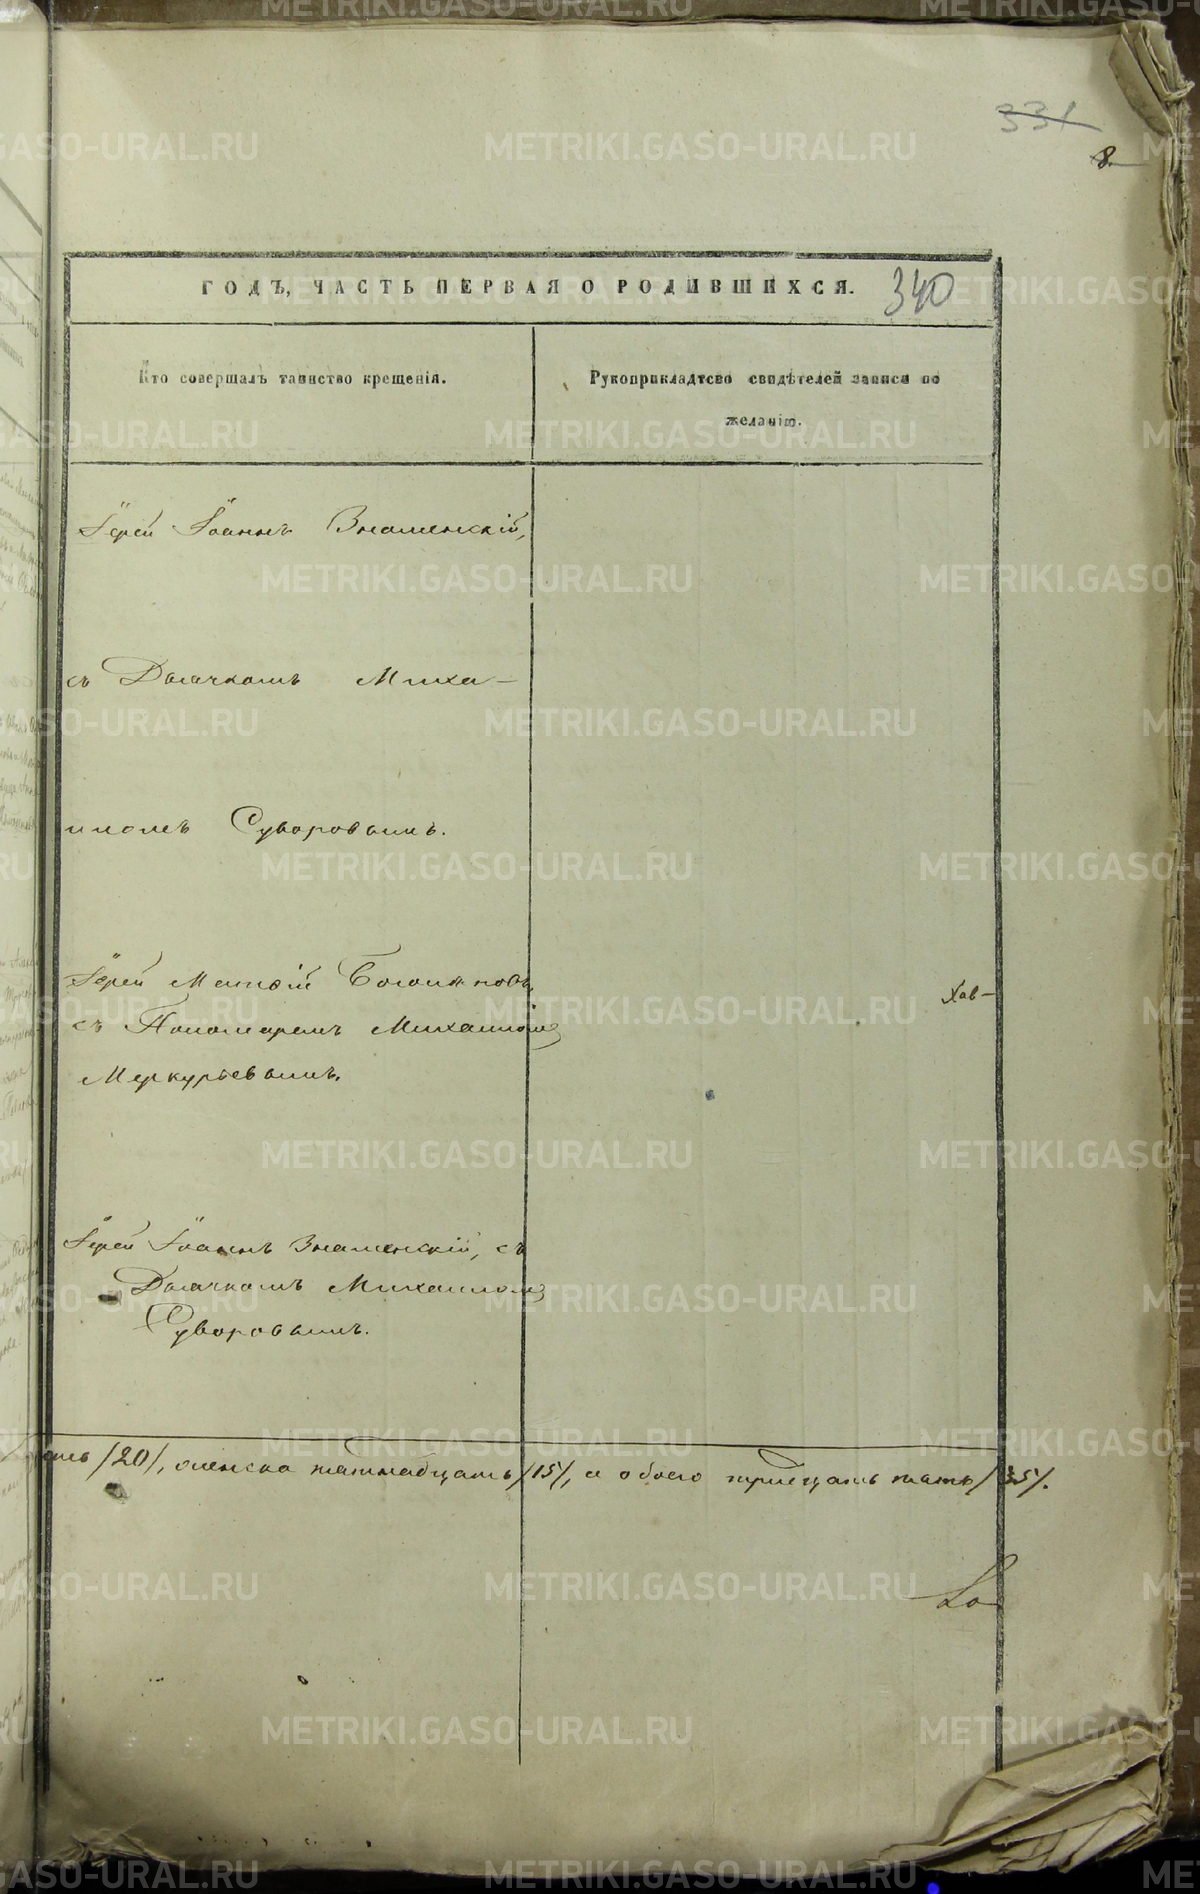 331
8.
ГОДЪ, ЧАСТЬ ПЕРВАЯ О РОДИВШИХСЯ.
340
Кто совершалъ таинство крещенія.
Рукоприкладтсво свидѣтелей записи по
желанію.
Іерей Іоаннъ Знаменскій,
съ Дьячкомъ Миха-
иломъ Суворовымъ.
Іерей Матѳій
съ Пономаремъ Михаиломъ
Меркурьевымъ.
Іерей Іоаннъ Знаменскій, съ
Дьячкомъ Михаиломъ
Суворовымъ.
/20/, женска пятнадцать /15/, а обоего тритцать пять /35/.
METRIKI.GASO-URAL.RU